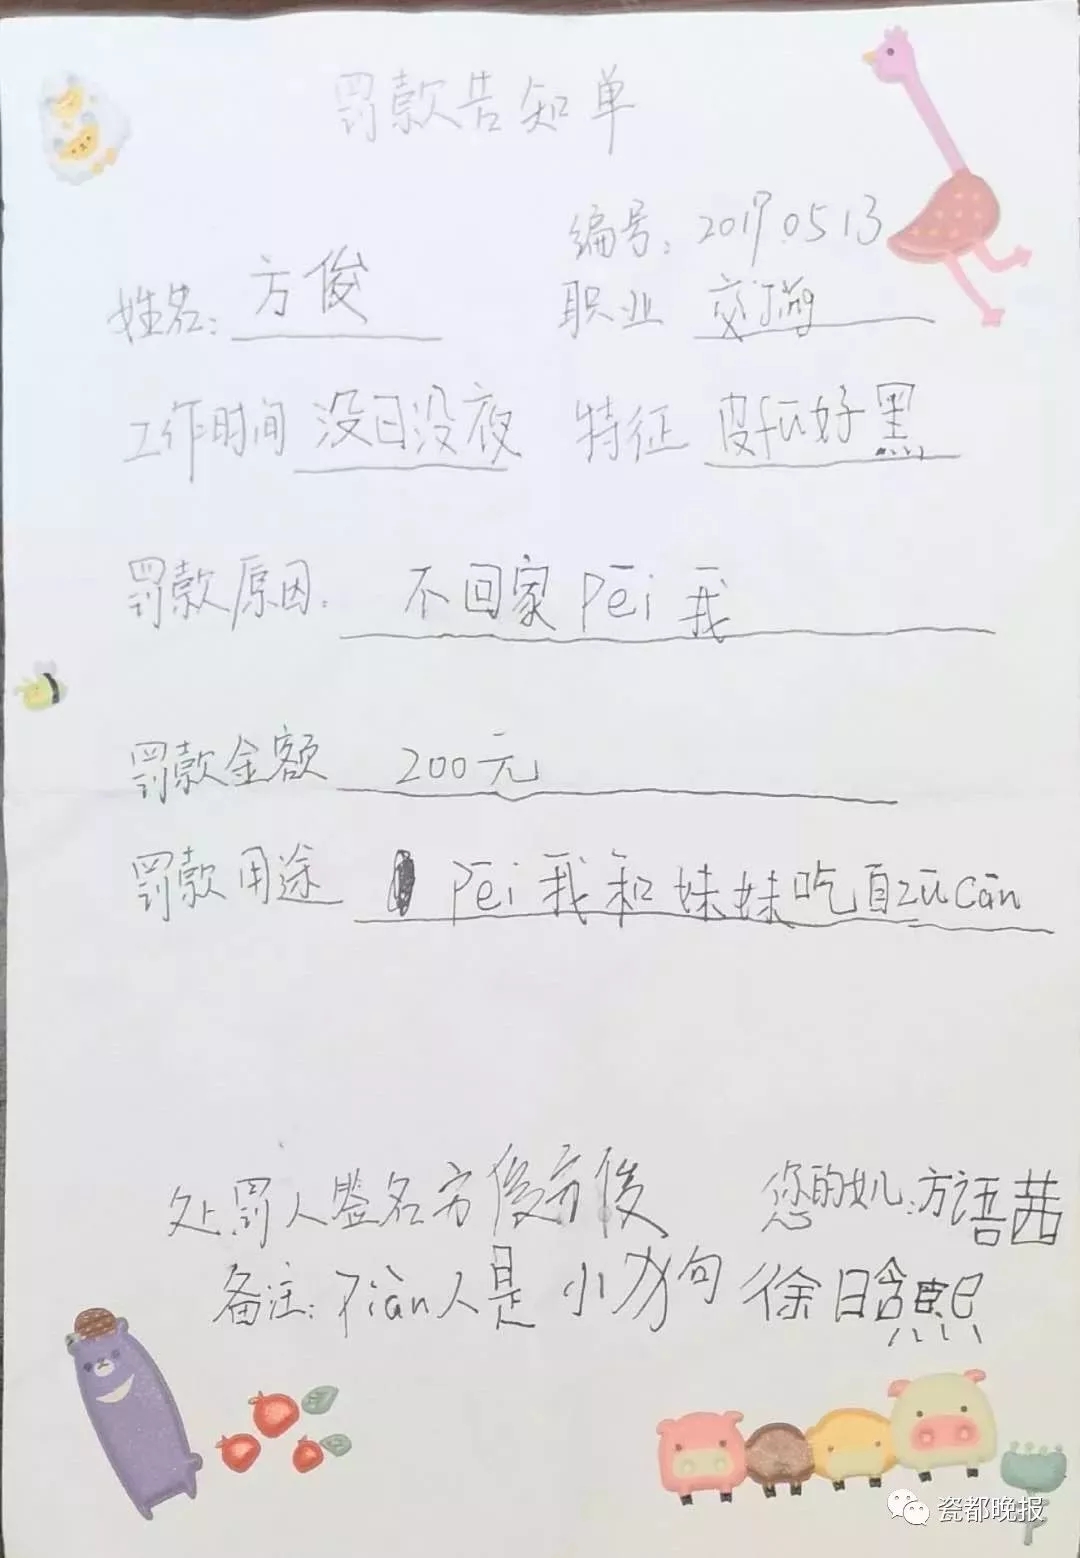 罚款告知单
编号：2019.05.13
姓名：方俊 职业 交jǐng
工作时间 没日没夜 特征 皮fū好黑
罚款原因：不回家Péi我
罚款金额 200元
罚款用途 Péi我和妹妹吃自zùcān
处罚人签名方俊方俊 您的女儿：方语茜
备注：Piàn人是小狗 徐晗熙
瓷都晚报